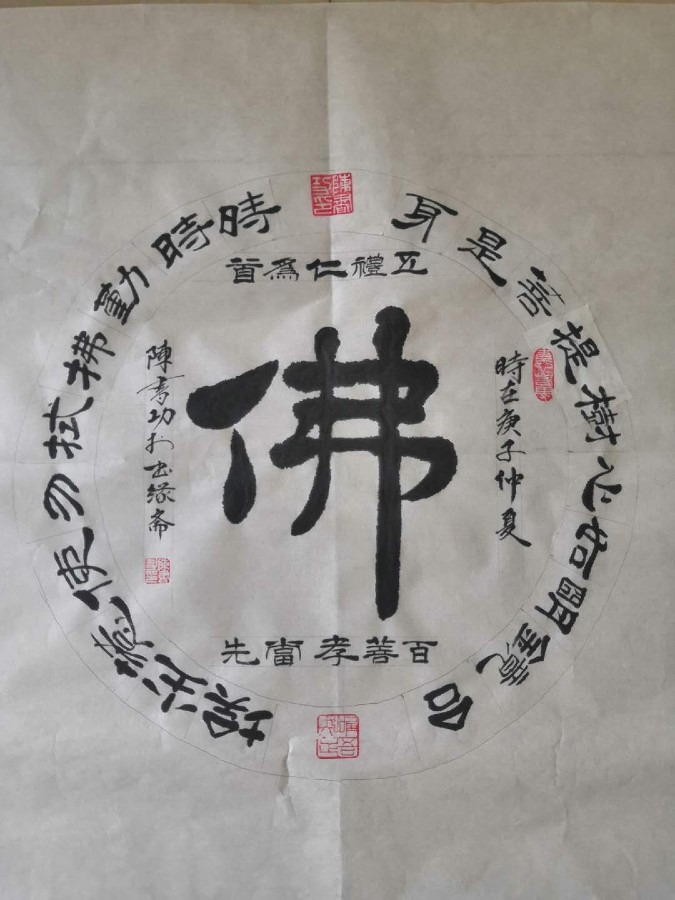 身是菩提樹心如明鏡台
時時勤拂拭勿使惹塵埃
五禮仁爲首
佛
百善孝當先
時在庚子仲夏
陳書功於
缘齋